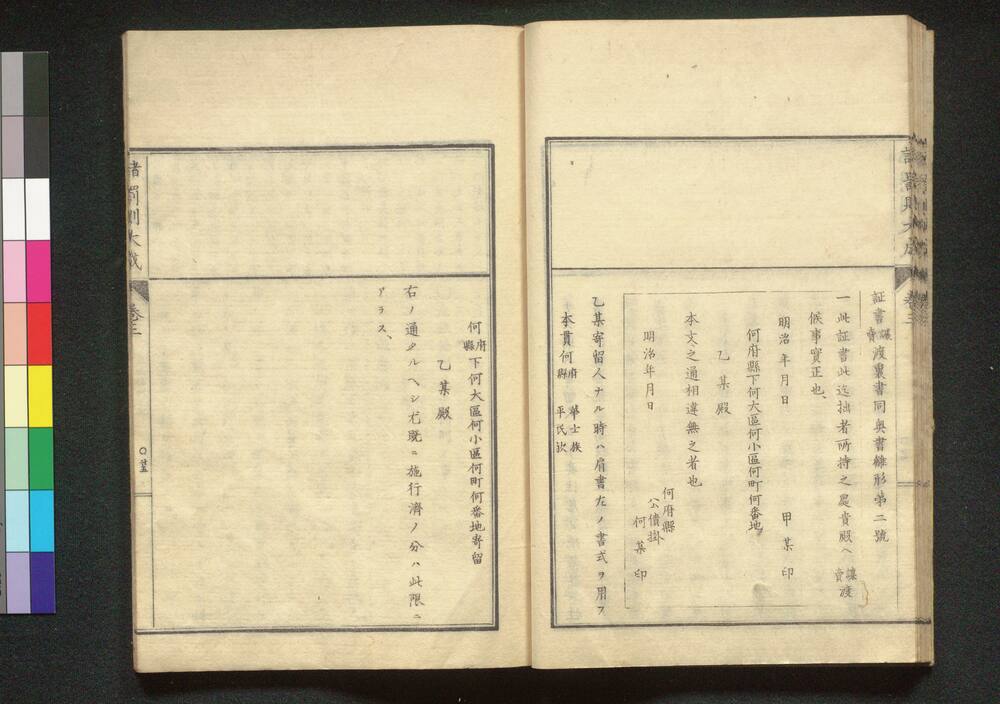 証書讓賣渡裏書同奥書雛形第二號
一此証書此迄拙者所持之處貴殿ヘ讓賣渡
候事實正也、
明治 年月日 甲某印
何府縣下何大區何小區何町何番地
乙某殿
本文之通相違無之者也
明治年月日
何府縣
公債掛
何某印
乙某寄留人ナル時ハ肩書左ノ書式ヲ用フ
本貫何府縣 華士族平民㰦
何府縣下何大區何小區何町何番地寄留
乙某殿
右ノ通タルヘシ尤既ニ施行濟ノ分ハ此限ニ
アラス、
大成
卷三